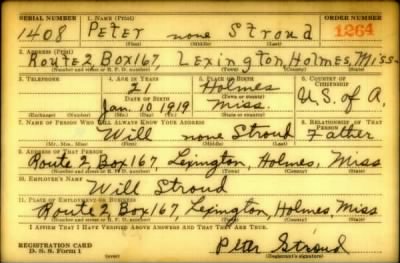 SERIAL NUMBER 1. NAME (Print) ORDER NUMBER
1408 PETER none Stroud 1264
(First) (Middle) (Last)
2. ADDRESS (Print)
Route 2, Box 167, Lexington, Holmes, Miss.
(Number and street or R. F. D. number) (Town) (County) (State)
3. TELEPHONE 4. AGE IN YEARS 5. PLACE OF BIRTH 6. COUNTRY OF CITIZENSHIP
21 Holmes
DATE OF BIRTH (Town or county) U.S. of A.
Jan. 10 1919 Miss.
(Exchange) (Number) (Mo.) (Day) (Yr.) (State or country)
7. NAME OF PERSON WHO WILL ALWAYS KNOW YOUR ADDRESS 8. RELATIONSHIP OF THAT PERSON
Will none Stroud Father
(Mr., Mrs., Miss) (First) (Middle) (Last)
9. ADDRESS OF THAT PERSON
Route 2, Box 167, Lexington, Holmes, Miss
(Number and street or R. F. D. number) (Town) (County) (State)
10. EMPLOYER'S NAME
Will Stroud
11. PLACE OF EMPLOYMENT OR BUSINESS
Route 2, Box 167, Lexington, Holmes, Miss
(Number and street or R. F. D. number) (Town) (County) (State)
I AFFIRM THAT I HAVE VERIFIED ABOVE ANSWERS AND THAT THEY ARE TRUE.
REGISTRATION CARD
D. S. S. Form 1 (over) Peter Stroud
(Registrant's signature)